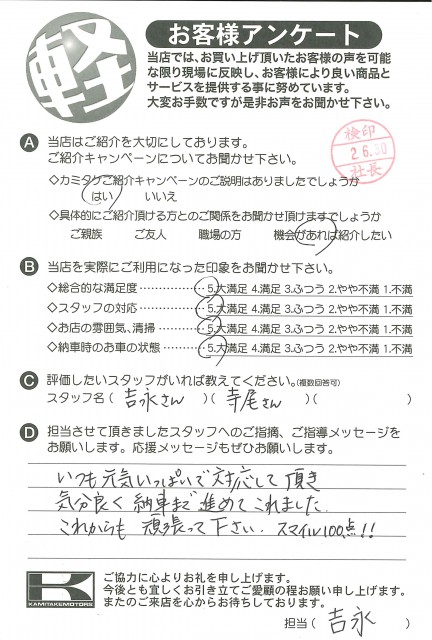 軽
お客様アンケート
当店では、お買い上げ頂いたお客様の声を可能
な限り現場に反映し、お客様により良い商品と
サービスを提供する事に努めています。
大変お手数ですが是非お声をお聞かせ下さい。
検印
2 6.30
社長
A 当店はご紹介を大切にしております。
ご紹介キャンペーンについてお聞かせ下さい。
◇カミタケご紹介キャンペーンのご説明はありましたでしょうか
はい いいえ
◇具体的にご紹介頂ける方とのご関係をお聞かせ頂けますでしょうか
ご親族 ご友人 職場の方 機会があれば紹介したい
B 当店を実際にご利用になった印象をお聞かせ下さい。
◇総合的な満足度…………5.大満足 4.満足 3.ふつう 2.やや不満 1.不満
◇スタッフの対応…………5.大満足 4.満足 3.ふつう 2.やや不満 1.不満
◇お店の雰囲気、清掃……5.大満足 4.満足 3.ふつう 2.やや不満 1.不満
◇納車時のお車の状態……5.大満足 4.満足 3.ふつう 2.やや不満 1.不満
C 評価したいスタッフがいれば教えてください。(複数回答可)
スタッフ名( 吉永さん )( 寺尾さん )( )
D 担当させて頂きましたスタッフへのご指摘、ご指導メッセージを
お願いします。応援メッセージもぜひお願いします。
いつも元気いっぱいで対応して頂き
気分良く納車まで進めてこれました。
これからも頑張って下さい。スマイル100点!!
KAMITAKEMOTORS
ご協力に心よりお礼を申し上げます。
今後とも宜しくお引き立てご愛顧の程お願い申し上げます。
またのご来店を心からお待ちしております。
担当( 吉永 )